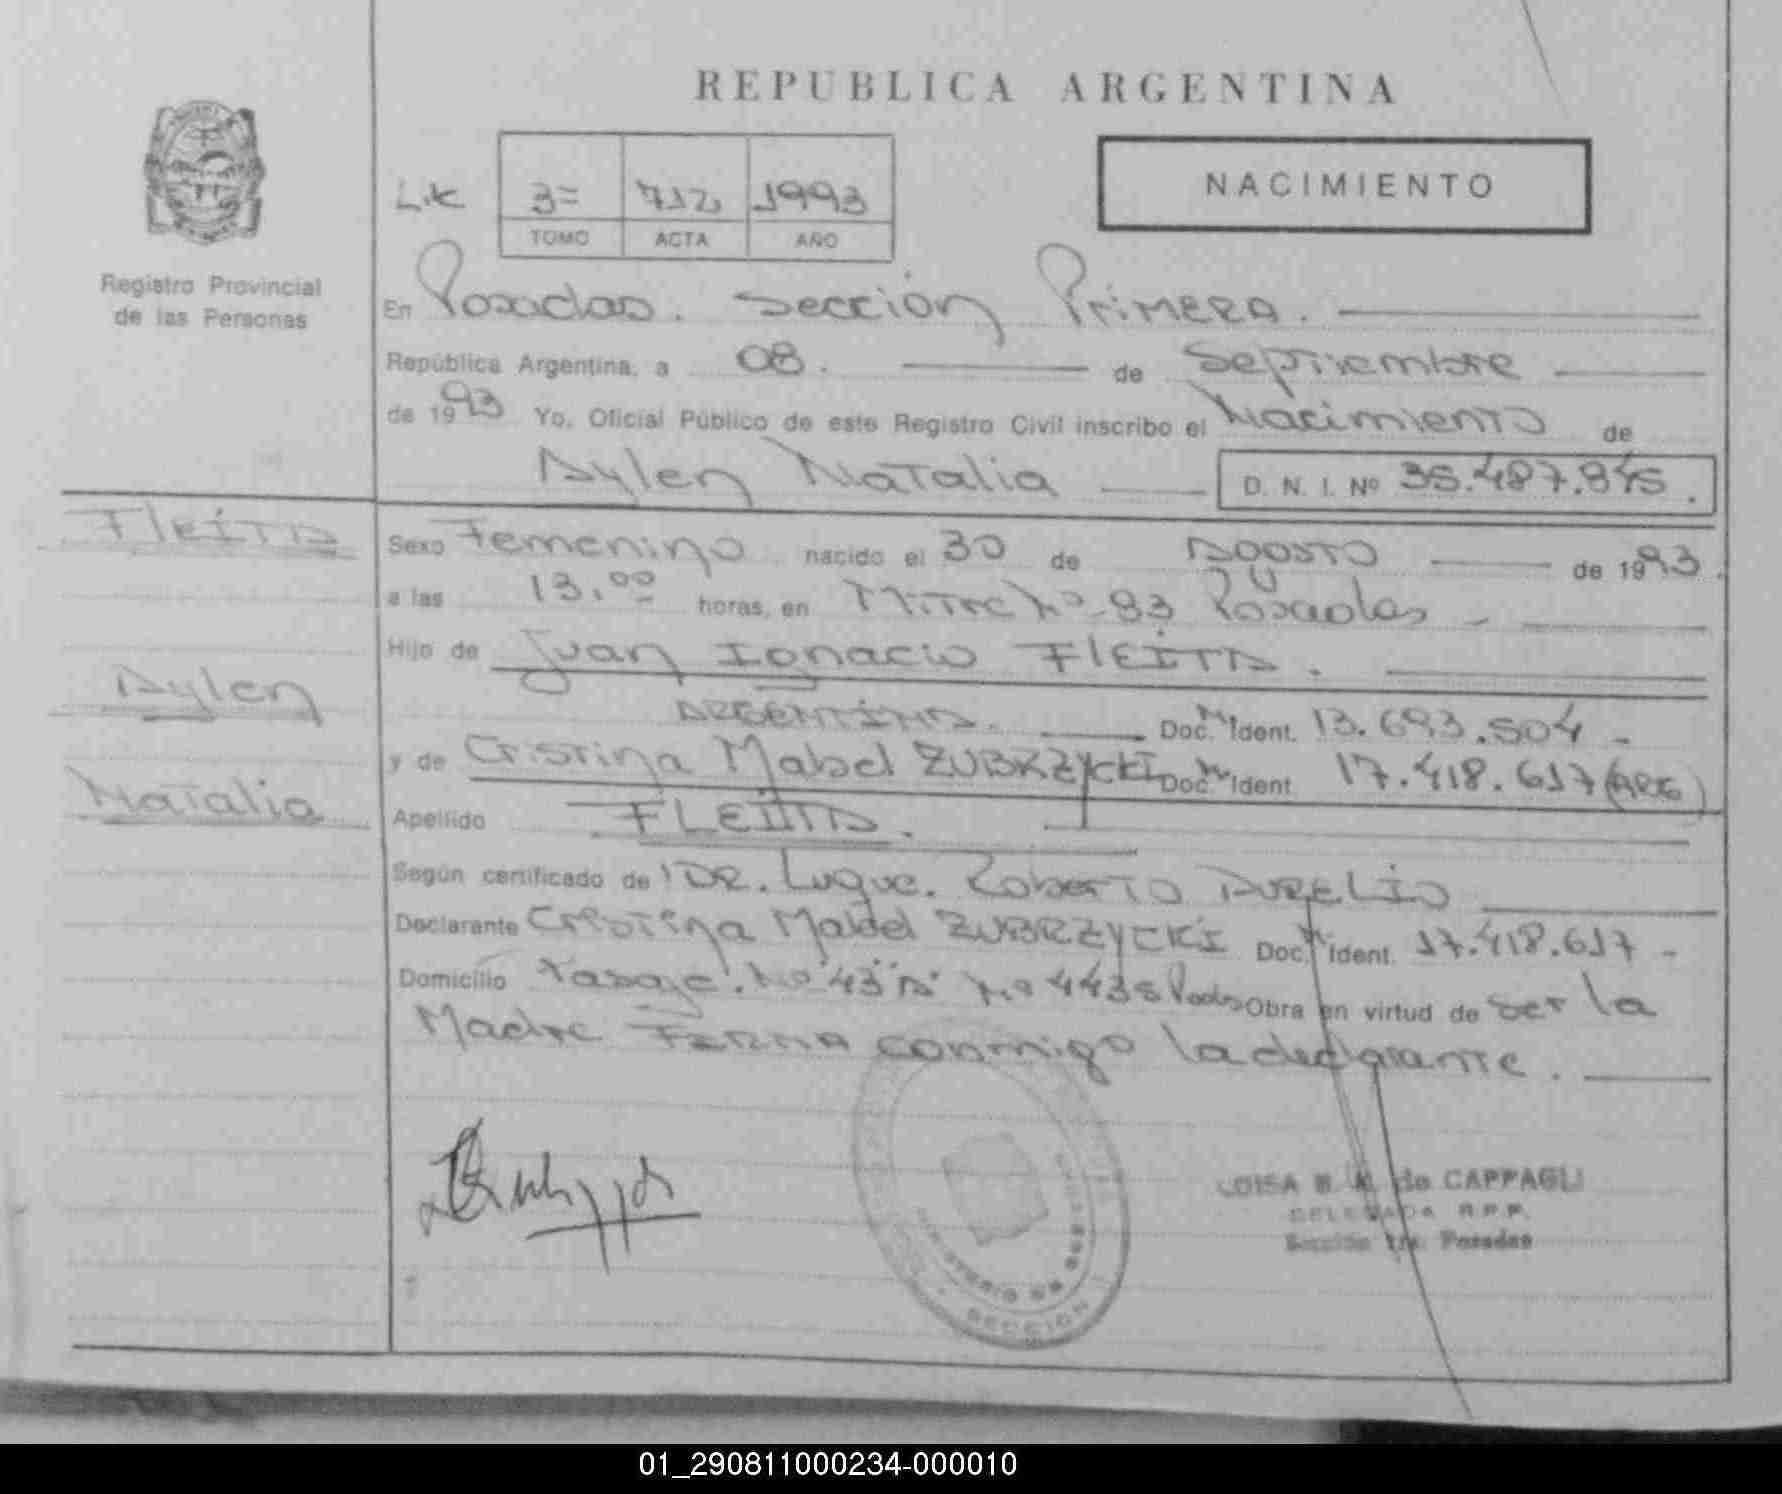 REPUBLICA ARGENTINA
NACIMIENTO
3= 712 1993
TOMO ACTA AÑO
Registro Provincial
de las Personas
En Posadas. Sección Primera.
República Argentina, a 08. de Septiembre
de 1993 Yo, Oficial Público de este Registro Civil inscribo el Nacimiento de
Aylen Natalia D. N. I. Nº 35.487.845.
FLEITA
Sexo Femenino nacido el 30 de Agosto de 1993.
a las 13.00 horas, en Mitre Nº 93 Posadas -
Hijo de Juan Ignacio FLEITA.
Aylen
ARGENTINA. Doc. Ident. 13.693.504 -
y de Cristina Mabel ZUBRZYCKI Doc. Ident. 17.418.617 (ARG)
Natalia
Apellido FLEITA.
Según certificado de DR. Luque. Roberto AURELIO
Declarante Cristina Mabel ZUBRZYCKI Doc. Ident. 17.418.617 -
Domicilio Pasaje. Nº 43 "A" Nº 4435 Pdas Obra en virtud de ser la
Madre FIRMA conmigo la declarante.
LUISA B. de CAPPAGLI
DELEGADA R.P.P.
Sección 1ra. Posadas
MINISTERIO DE GOBIERNO
SECCION
01_290811000234-000010